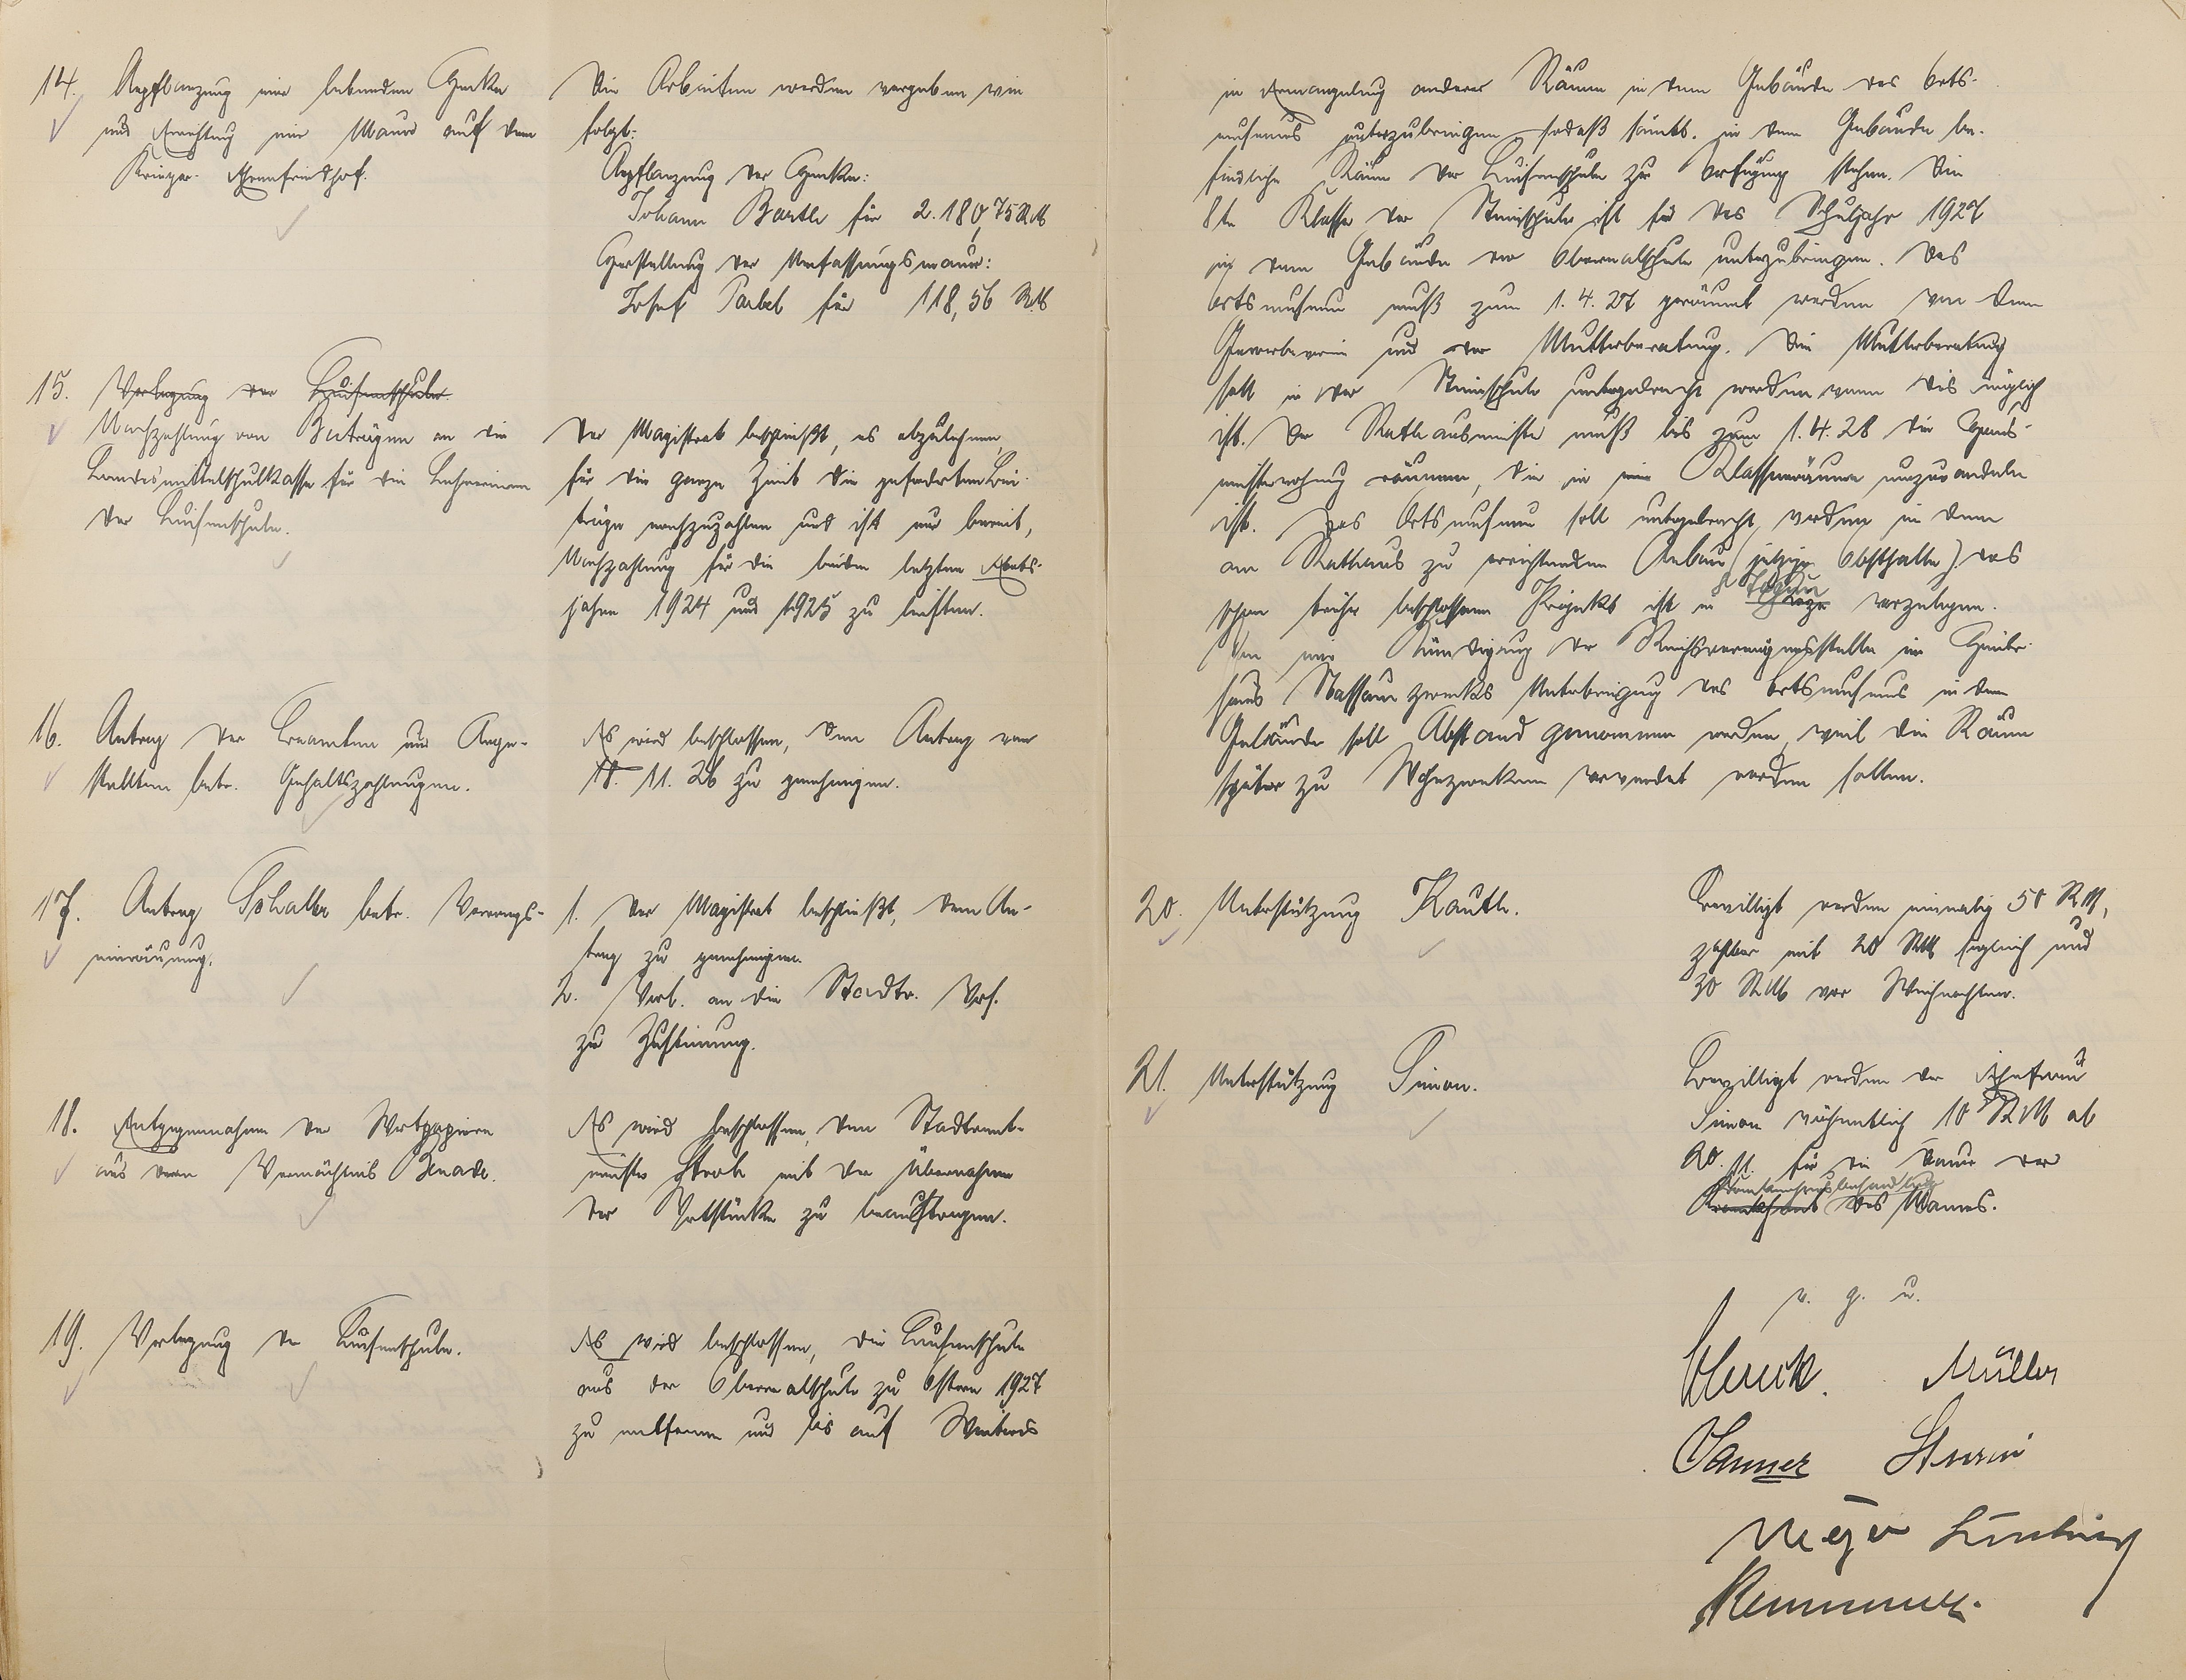 14. Anpflanzung einer lebenden Hecke
und Errichtung einer Mauer auf dem
Krieger-Ehrenfriedhof.
Die Arbeiten werden vergeben wie
folgt:
Anpflanzung der Hecke:
Johann Bartle für 2.180,75 RM
Herstellung der Umfassungsmauer:
Josef Pabel für 118,56 RM
15. Verlegung der Luisenschule.
Nachzahlung von Beiträgen an die
Landesmittelschulkasse für die Lehrerinnen
der Luisenschule.
Der Magistrat beschließt, es abzulehnen,
für die ganze Zeit die geforderten Bei-
träge nachzuzahlen und ist nur bereit,
Nachzahlung für die beiden letzten Etats-
jahre 1924 und 1925 zu leisten.
16. Antrag der Beamten und Ange-
stellten betr. Gehaltszahlungen.
Es wird beschlossen, den Antrag vom
18. 11. 26 zu genehmigen.
17. Antrag Schaller betr. Vorrangs-
einräumung.
1. Der Magistrat beschließt, dem An-
trag zu genehmigen.
2. Vorl. an die Stadtv. Vers.
zur Zustimmung.
18. Entgegennahme der Wertpapiere
aus dem Vermächtnis Benade.
Es wird beschlossen, den Stadtrent-
meister Strob mit der Übernahme
der Wertstücke zu beauftragen.
19. Verlegung der Luisenschule.
Es wird beschlossen, die Luisenschule
aus der Oberrealschule zu Ostern 1927
zu entfernen und bis auf Weiteres
in Ermangelung anderer Räume in dem Gebäude des Orts-
museums unterzubringen, sodaß sämtl. in dem Gebäude be-
findliche Räume der Luisenschule zur Verfügung stehen. Die
8te Klasse der Steinschule ist für das Schuljahr 1927
in dem Gebäude der Oberrealschule unterzubringen. Das
Ortsmuseum muß zum 1.4.27 geräumt werden von dem
Gewerbeverein und der Mutterberatung. Die Mutterberatung
soll in der Steinschule untergebracht werden wenn dies möglich
ist. Der Rathausmeister muß bis zum 1.4.28 die Haus-
meisterwohnung räumen, die in eine Klassenräume umzuwandeln
ist. Das Ortsmuseum soll untergebracht werden in dem
am Rathaus zu errichtenden Anbau (jetzige Obsthalle), das
schon früher beschlossene Projekt ist in 8 Tagen vorzulegen.
Von einer Kündigung der Reichsvermögensstelle im Hinter-
haus Nassau zwecks Unterbringung des Ortsmuseums in dem
Gebäude soll Abstand genommen werden, weil die Räume
später zu Wohnzwecken verwendet werden sollen.
20. Unterstützung Kauth.
Bewilligt werden einmalig 50 RM,
zahlbar mit 20 RM sogleich und
30 RM vor Weihnachten.
21. Unterstützung Simon.
Bewilligt werden der Ehefrau
Simon wöchentlich 10 RM ab
20. 11. für die Dauer der
Krankenhausbehandlung
Krankheit des Mannes.
v. g. u.
Müller
Sanner Sturm
Meyer